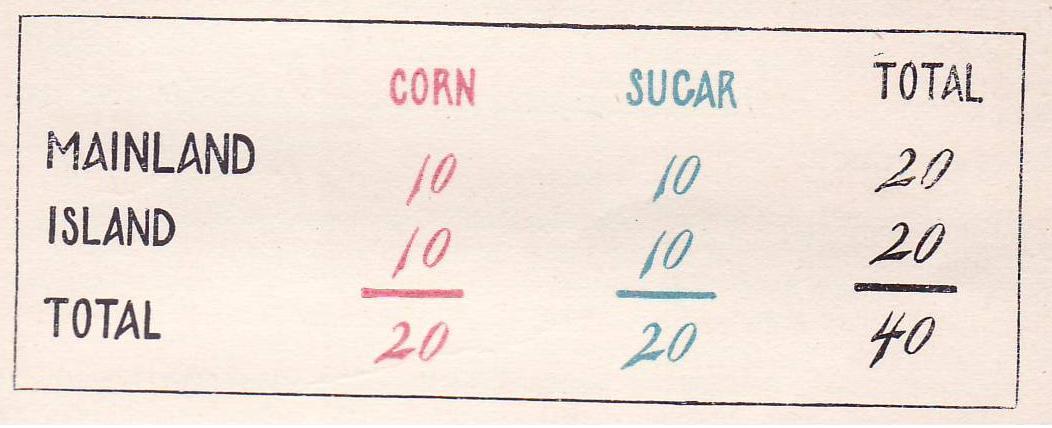 CORN SUGAR TOTAL
MAINLAND 10 10 20
ISLAND 10 10 20
TOTAL 20 20 40